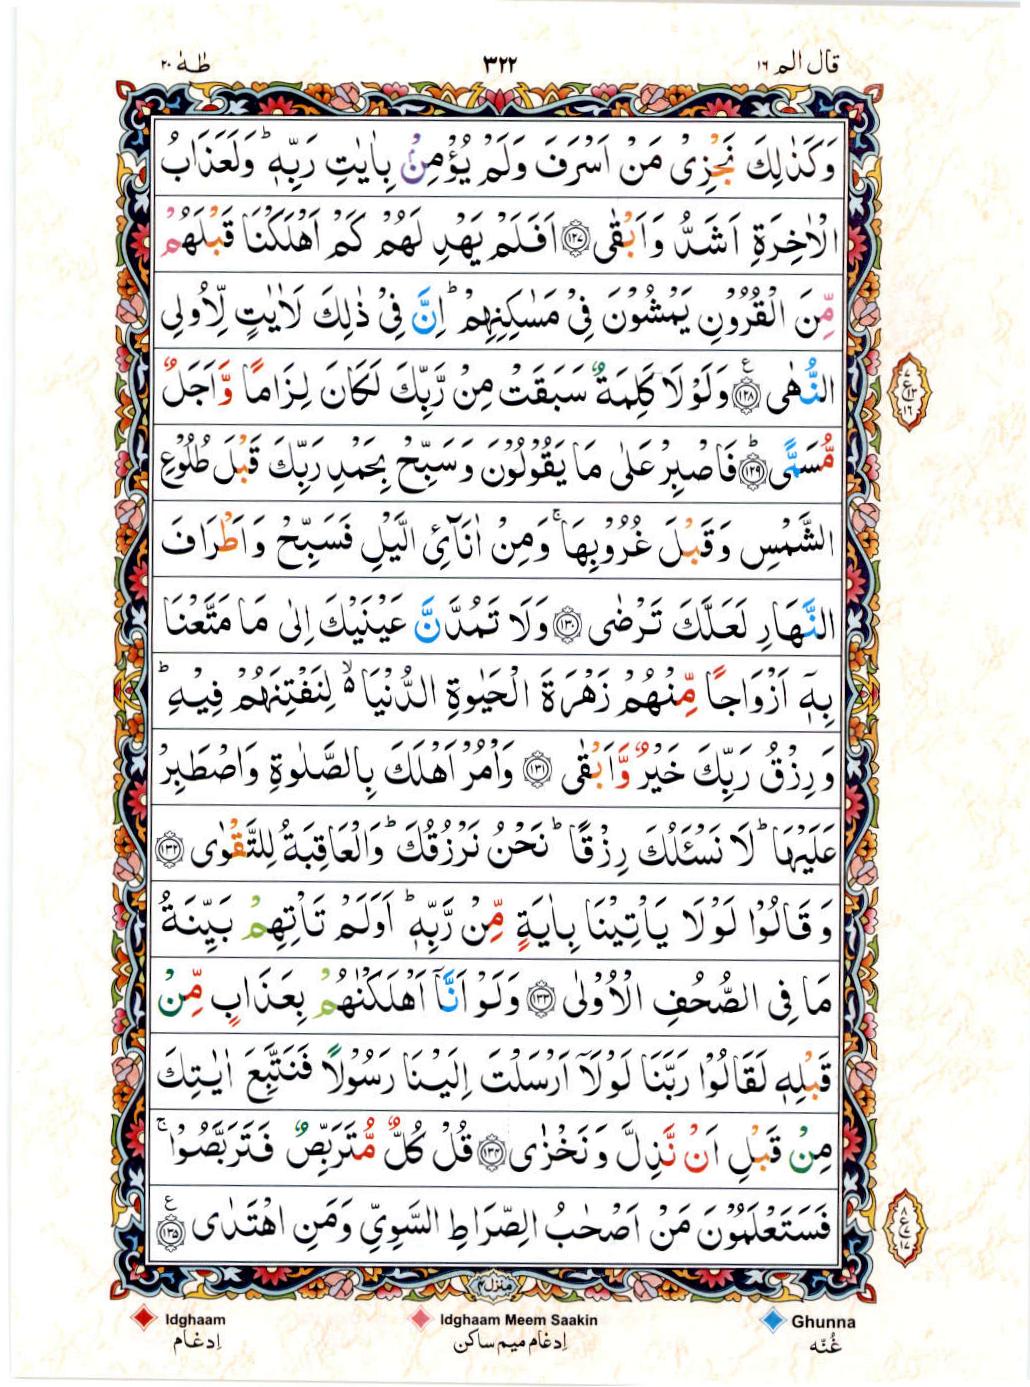 قال الم ١٦ ٣٢٢ طٰهٰ ٢٠
وَكَذٰلِكَ نَجْزِىْ مَنْ اَسْرَفَ وَلَمْ يُؤْمِنْۢ بِاٰيٰتِ رَبِّهٖ ؕ وَلَعَذَابُ
الْاٰخِرَةِ اَشَدُّ وَاَبْقٰى ﴿١٢٧﴾ اَفَلَمْ يَهْدِ لَهُمْ كَمْ اَهْلَكْنَا قَبْلَهُمْ
مِّنَ الْقُرُوْنِ يَمْشُوْنَ فِىْ مَسٰكِنِهِمْ ؕ اِنَّ فِىْ ذٰلِكَ لَاٰيٰتٍ لِّاُولِى
النُّهٰى ﴿١٢٨﴾ ع وَلَوْلَا كَلِمَةٌ سَبَقَتْ مِنْ رَّبِّكَ لَكَانَ لِزَامًا وَّاَجَلٌ
مُّسَمًّى ؕ ﴿١٢٩﴾ فَاصْبِرْ عَلٰى مَا يَقُوْلُوْنَ وَسَبِّحْ بِحَمْدِ رَبِّكَ قَبْلَ طُلُوْعِ
الشَّمْسِ وَقَبْلَ غُرُوْبِهَا ۚ وَمِنْ اٰنَآئِ الَّيْلِ فَسَبِّحْ وَاَطْرَافَ
النَّهَارِ لَعَلَّكَ تَرْضٰى ﴿١٣٠﴾ وَلَا تَمُدَّنَّ عَيْنَيْكَ اِلٰى مَا مَتَّعْنَا
بِهٖۤ اَزْوَاجًا مِّنْهُمْ زَهْرَةَ الْحَيٰوةِ الدُّنْيَا ۙ۬ لِنَفْتِنَهُمْ فِيْهِ ؕ
وَرِزْقُ رَبِّكَ خَيْرٌ وَّاَبْقٰى ﴿١٣١﴾ وَاْمُرْ اَهْلَكَ بِالصَّلٰوةِ وَاصْطَبِرْ
عَلَيْهَا ؕ لَا نَسْـَٔلُكَ رِزْقًا ؕ نَحْنُ نَرْزُقُكَ ؕ وَالْعَاقِبَةُ لِلتَّقْوٰى ﴿١٣٢﴾
وَقَالُوْا لَوْلَا يَاْتِيْنَا بِاٰيَةٍ مِّنْ رَّبِّهٖ ؕ اَوَلَمْ تَاْتِهِمْ بَيِّنَةُ
مَا فِى الصُّحُفِ الْاُوْلٰى ﴿١٣٣﴾ وَلَوْ اَنَّاۤ اَهْلَكْنٰهُمْ بِعَذَابٍ مِّنْ
قَبْلِهٖ لَقَالُوْا رَبَّنَا لَوْلَاۤ اَرْسَلْتَ اِلَيْنَا رَسُوْلًا فَنَتَّبِعَ اٰيٰتِكَ
مِنْ قَبْلِ اَنْ نَّذِلَّ وَنَخْزٰى ﴿١٣٤﴾ قُلْ كُلٌّ مُّتَرَبِّصٌ فَتَرَبَّصُوْا ۚ
فَسَتَعْلَمُوْنَ مَنْ اَصْحٰبُ الصِّرَاطِ السَّوِىِّ وَمَنِ اهْتَدٰى ﴿١٣٥﴾ ع
منزل ٤
Idghaam Idghaam Meem Saakin Ghunna
اِدغام اِدغام میم ساکن غُنّه